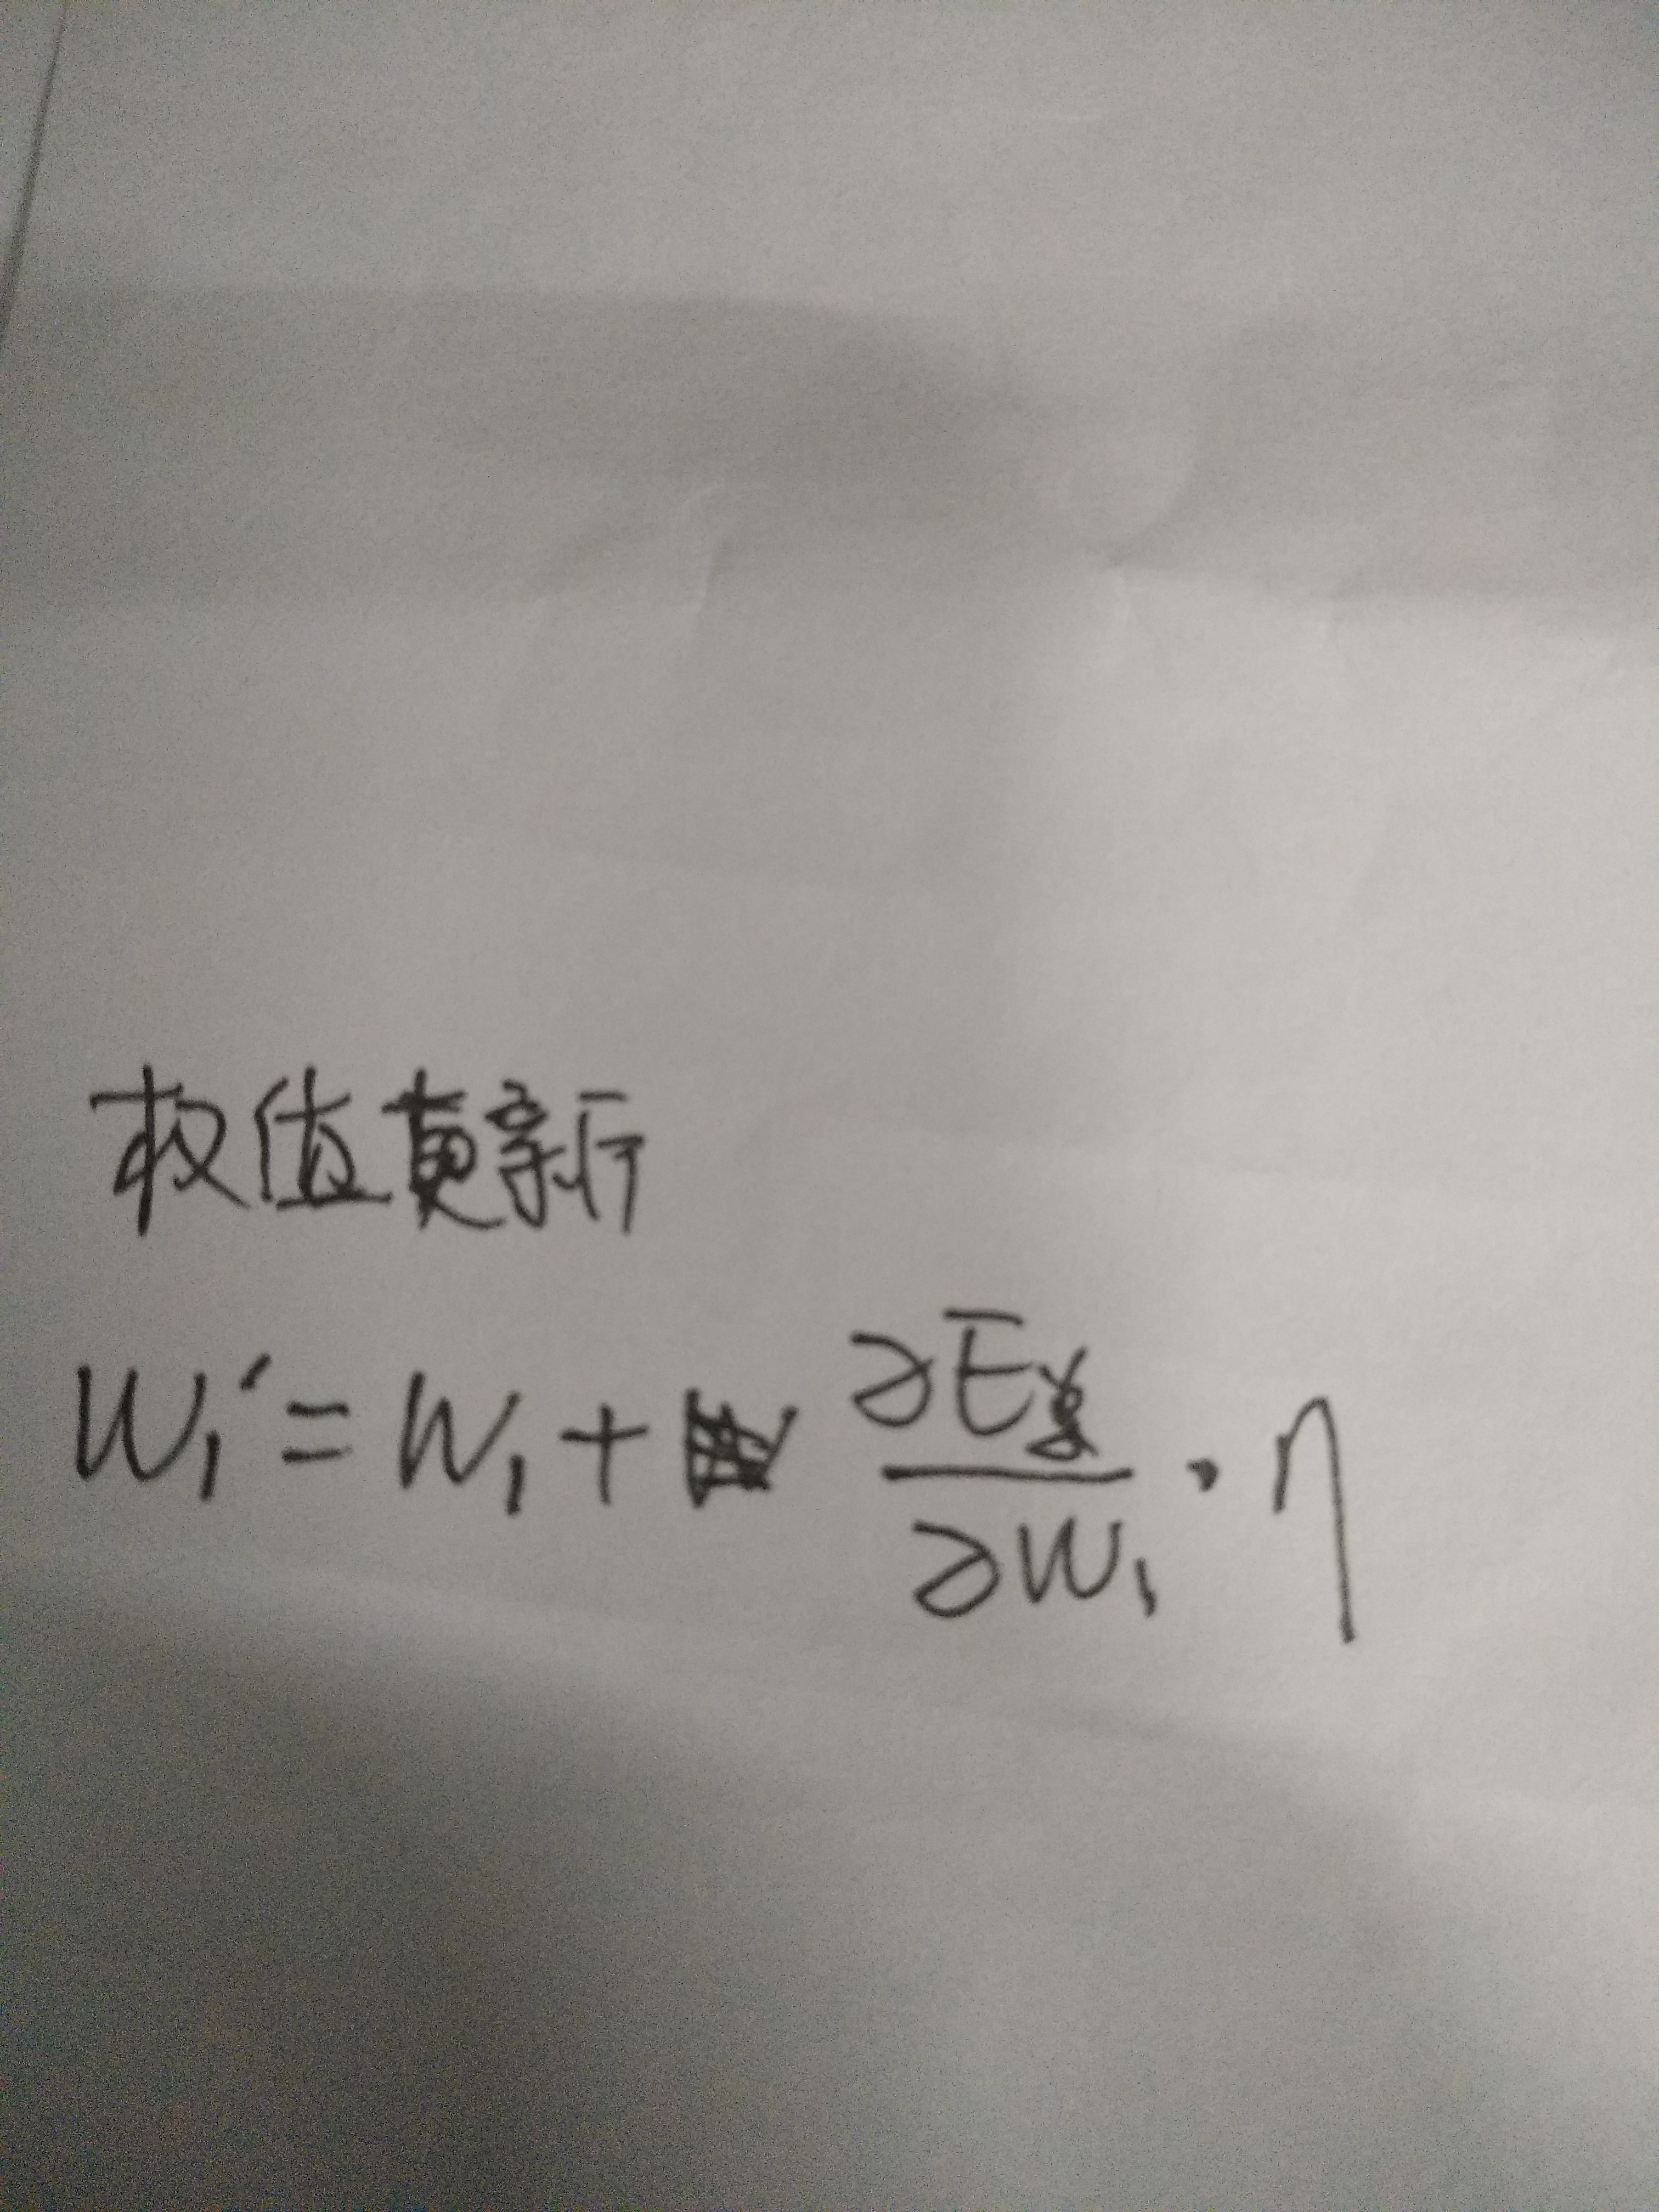 权值更新
W₁' = W₁ + ∂E / ∂W₁ · η